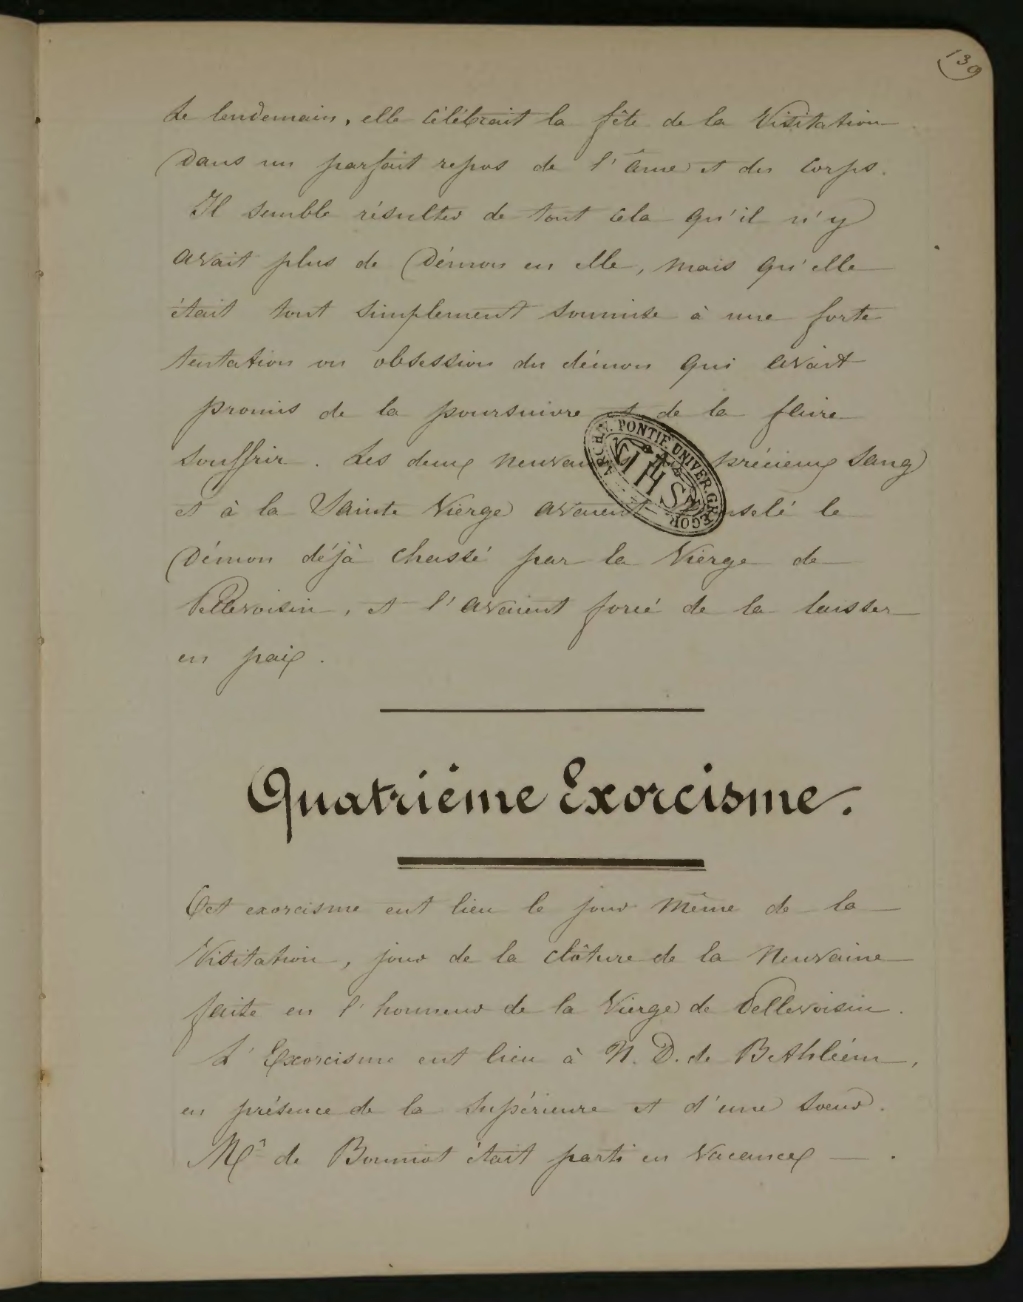 130
Le lendemain, elle célébrait la fête de la Visitation
dans un parfait repos de l'âme et du corps.
Il semble résulter de tout cela qu'il n'y
avait plus de Démon en elle, mais qu'elle
était tout simplement soumise à une forte
tentation ou obsession du démon qui avait
promis de la poursuivre de la faire
souffrir. Les deux précieux Sang
et à la Sainte Vierge avaient le
Démon déjà chassé par la Vierge de
Pellevoisin, et l'avaient forcé de la laisser
en paix.
ARCHIV. PONTIF. UNIVER. GREGOR.
IHS
Quatrième Exorcisme.
Cet exorcisme eut lieu le jour même de la
Visitation, jour de la clôture de la Neuvaine
faite en l'honneur de la Vierge de Pellevoisin.
L'Exorcisme eut lieu à N. D. de Bethléem,
en présence de la Supérieure et d'une Soeur.
Mr de Bonniot était parti en vacances — .